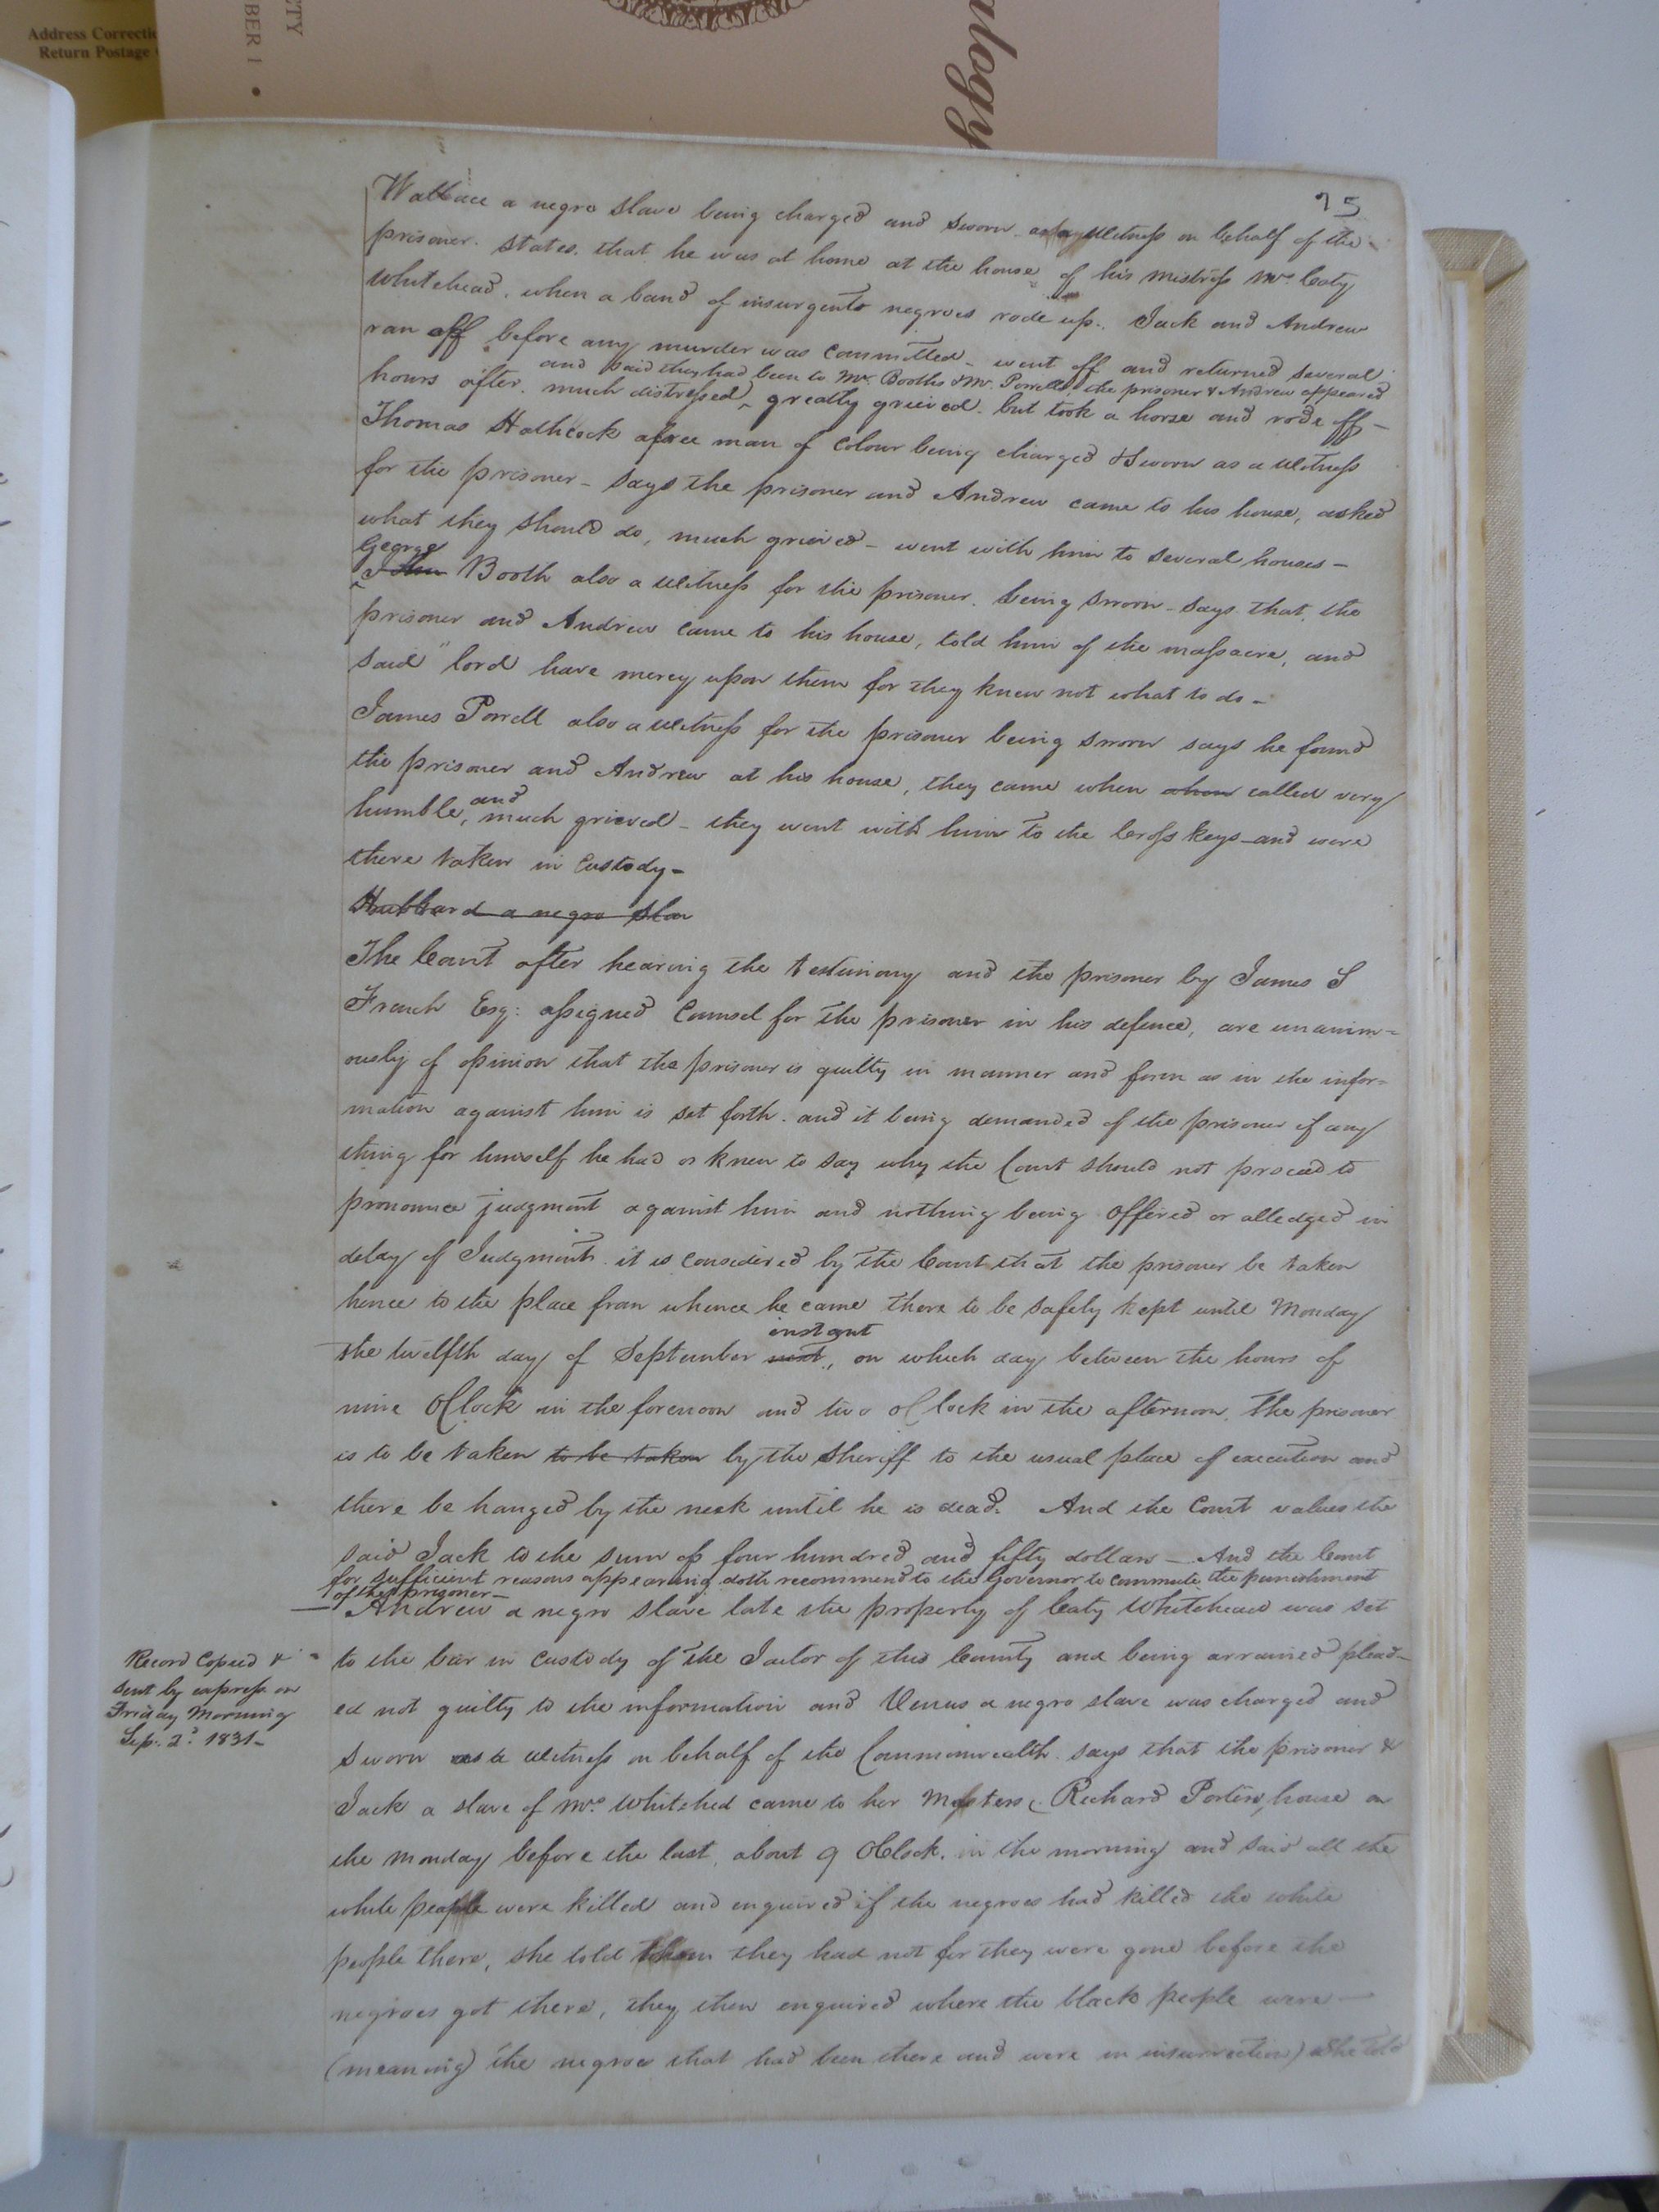 Address Correctio
Return Postage
ETY
BER 1 •
ology
75
Wallace a negro slave being charged and sworn as a witness on behalf of the
prisoner. states. that he was at home at the house of his mistress Mrs Caty
Whitehead. when a band of insurgents negroes rode up. Jack and Andrew
ran off before any murder was committed - went off and returned several
and said they had been to Mr. Booths & Mr. Porrells, the prisoner & Andrew appeared
hours after. much distressed ^ greatly grieved. but took a horse and rode off -
Thomas Hathcock a free man of colour being charged & sworn as a witness
for the prisoner - says the prisoner and Andrew came to his house, asked
what they should do, much grieved - went with him to several houses -
George
John Booth also a witness for the prisoner. being sworn - says. that, the
prisoner and Andrew came to his house, told him of the massacre, and
said "lord have mercy upon them for they knew not what to do -
James Porrell also a witness for the prisoner being sworn says he found
the prisoner and Andrew at his house, they came when called very
and
humble, much grieved - they went with him to the Cross keys - and were
there taken in Custody -
Hubbard a negro slav
The Court after hearing the testimony and the prisoner by James S
French Esq: assigned Counsel for the prisoner in his defence, are unanim=
ously of opinion that the prisoner is guilty in manner and form as in the infor=
mation against him is set forth. and it being demanded of the prisoner if any
thing for himself he had or knew to say why the Court should not proceed to
pronounce judgment against him and nothing being offered or alledged in
delay of Judgment. it is considered by the Court that the prisoner be taken
hence to the place from whence he came there to be safely kept until Monday
instant
the twelfth day of September next, on which day between the hours of
nine OClock in the forenoon and two oClock in the afternoon. the prisoner
is to be taken to be taken by the Sheriff to the usual place of execution and
there be hanged by the neck until he is dead. And the Court values the
said Jack to the sum of four hundred and fifty dollars - And the Court
for sufficient reasons appearing doth recommend to the Governor to commute the punishment
of the prisoner -
Andrew a negro slave late the property of Caty Whitehead was set
to the bar in Custody of the Jailor of this County and being arrained plead-
ed not guilty to the information and Venus a negro slave was charged and
sworn as a witness on behalf of the Commonwealth. says that the prisoner &
Jack a slave of Mrs Whitehed came to her Masters (Richard Porters) house on
the monday before the last, about 9 OClock. in the morning and said all the
white people were killed and enquired if the negroes had killed the white
people there, she told them they had not for they were gone before the
negroes got there, they then enquired where the black people were -
(meaning) the negroes that had been there and were in insurrection) she told
Record Copied &
sent by express on
Friday Morning
Sep. 2d 1831 -